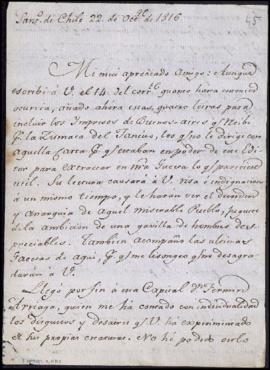 Sant.º de Chile 22 de Oct.re de 1816
45
Mi muy apreciado Amigo: Aunque
escribí a V. el 14 del cor.te quanto hara
ocurria, añado ahora esas quatro letras para
incluir los Impresos de Buenos-aires q.e
la Zumaca del los q.e no le dirigi con
aquella Carta p.r q.e estaban en poder de
para extractar en
util. Su lectura causará á V. risa é indignacion
a un mismo tiempo, y le harán ver el desorden
y Anarquia de aquel miserable Pueblo,
la ambicion de una gavilla de hombres des-
preciables. Tambien acompaño las ultimas
Gacetas de aqui, q.e me lisongeo q.e no desagra-
darán á V.
Llegó por fin á esta Capital D.n Fermin
quien me ha contado con individualidad
los disgustos y desaires q.e V. ha experimentado
de sus propias criaturas. No hé podido oirlo